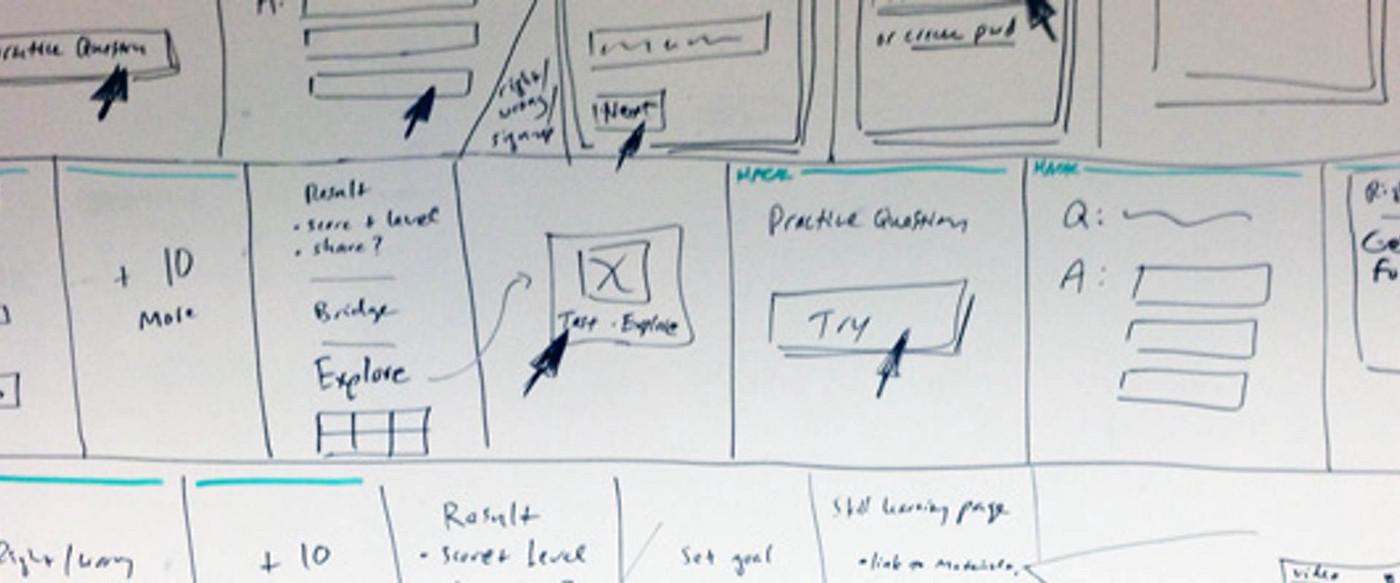 Practice Question
A:
right/
wrong/
signup
Next
or create pwd
+ 10
More
Result
• score + level
• share?
Bridge
Explore
Test · Explore
Practice Question
Try
Q:
A:
Right/Wrong
+ 10
Result
• score + level
Set goal
Still learning page
• link to materials
video